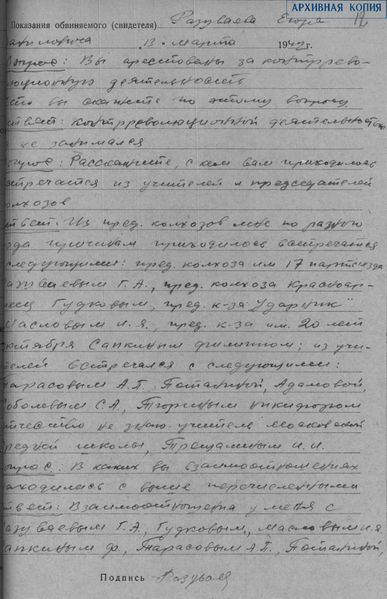 АРХИВНАЯ КОПИЯ
12
Показания обвиняемого (свидетеля) Разуваева Егора
13 марта 1942 г.
опрос: Вы арестованы за контррево-
люционную деятельность
что вы скажете по этому вопросу
твет: контрреволюционной деятельностью
не занимался
опрос: Расскажите, с кем вам приходилось
встречатся из учителей и председателей
колхозов
твет: Из пред. колхозов мне по разного
рода причинам приходилось встречатся
следующими: пред. колхоза им 17 партсъезда
азуваевым Г.А., пред. колхоза Красноар-
меец Гудковым, пред. к-за "Ударник"
Масловым И.Я., пред. к-за им. 20 лет
октября Сапкиным Филиппом; из учи-
телей встречался с следующими:
арасовым А.П., Потапиной, Адамовой,
оболевым С.А., Никифором
отчество не знаю учитель
средней школы, Трещалиным И.И.
опрос: В каких вы взаимоотношениях
находились с выше перечисленными
твет: Взаимоотношения у меня с
азуваевым Г.А., Гудковым, Масловым И.Я.
апкиным Ф., Тарасовым А.П., Потапиной,
Подпись Разуваев